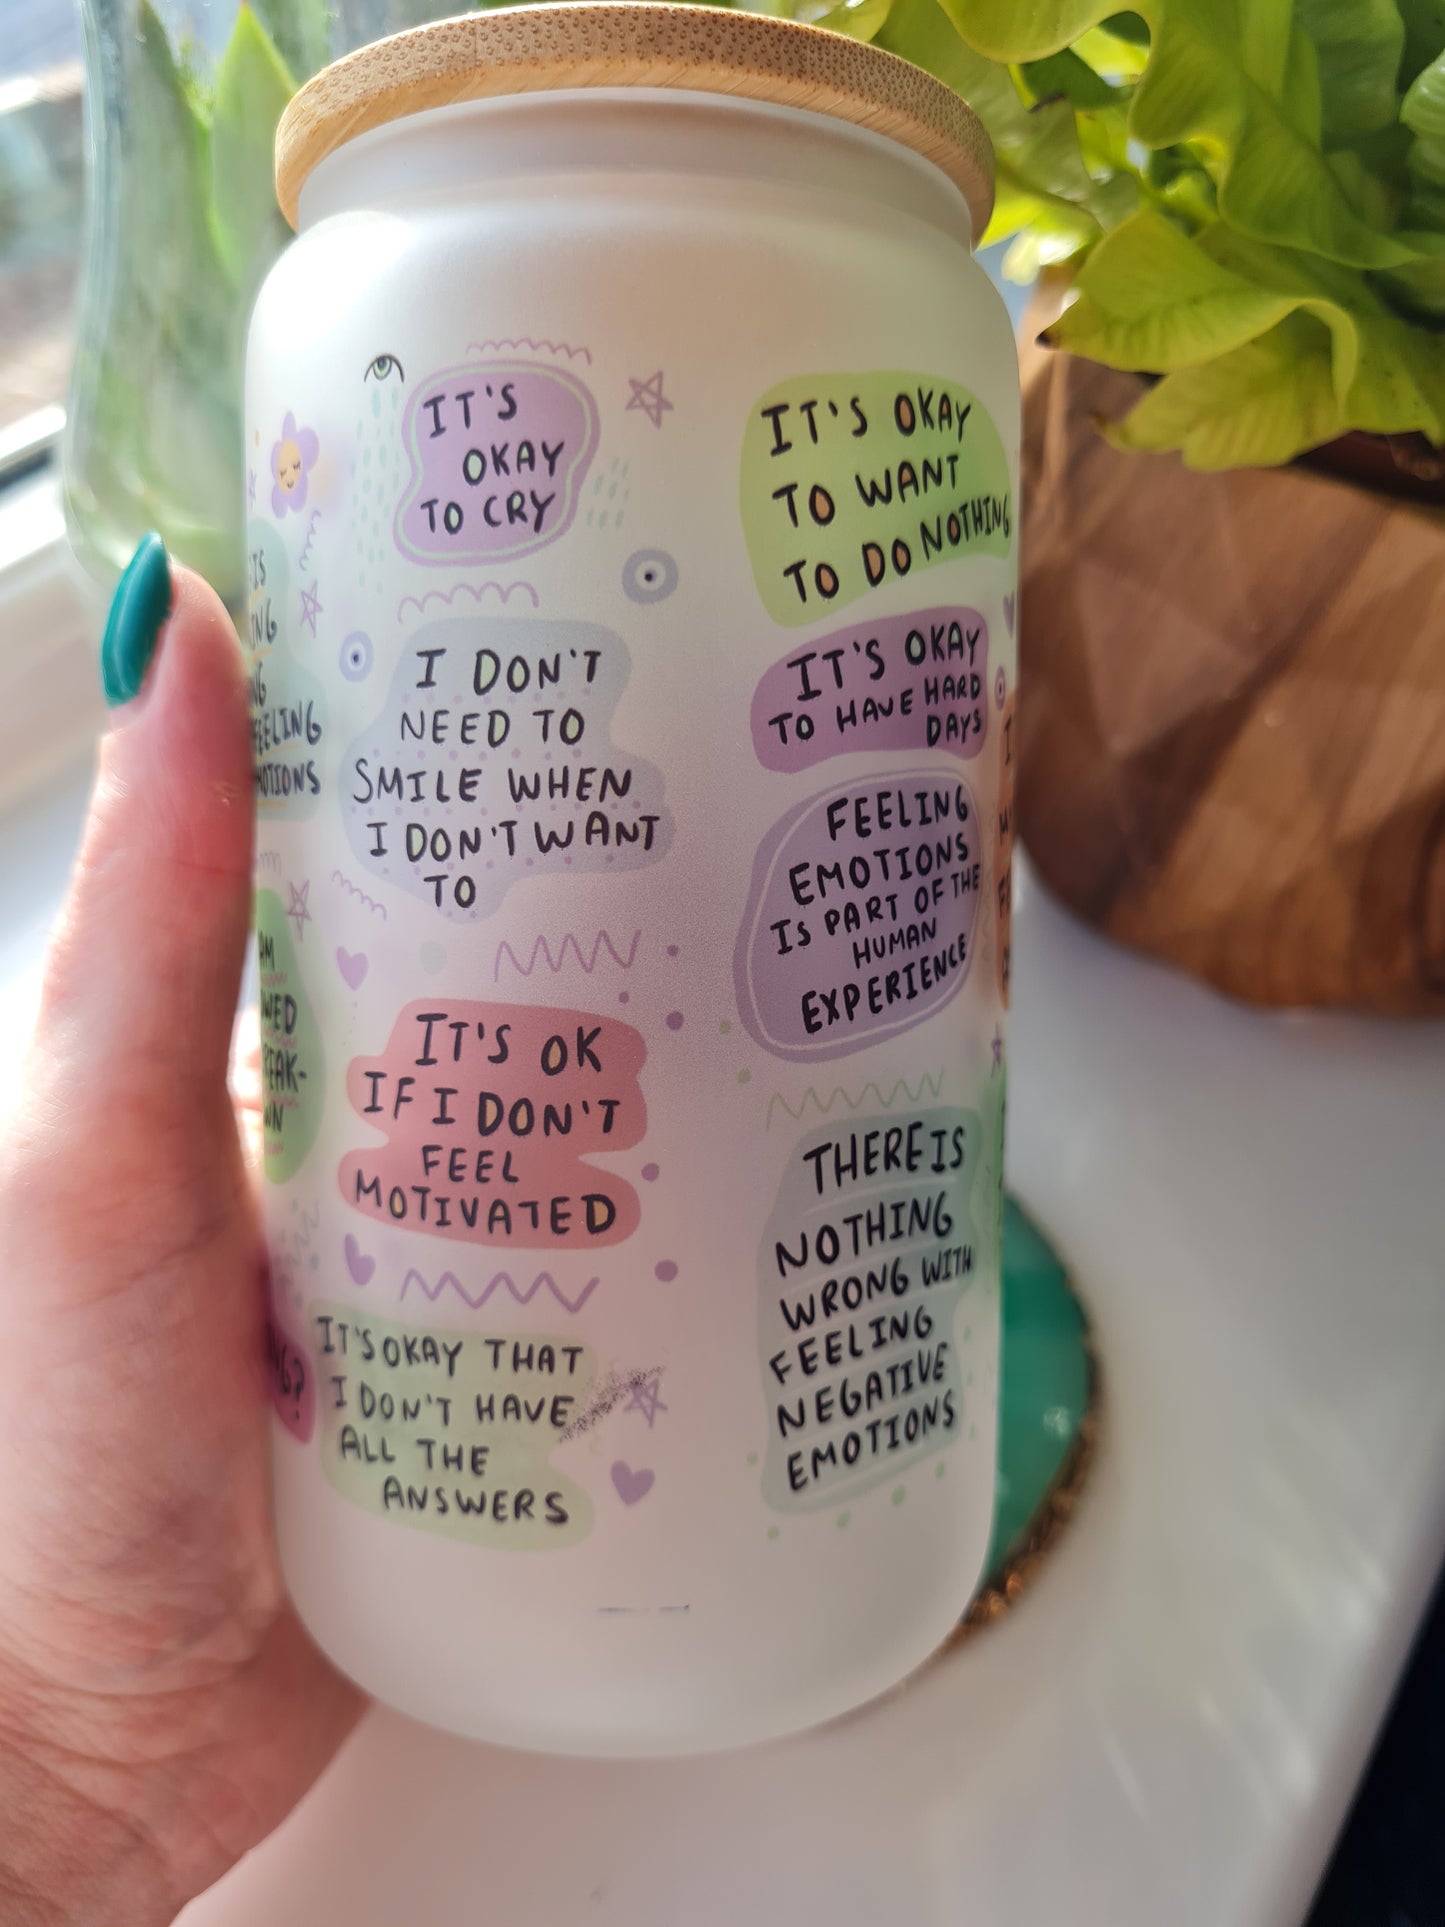 IS
FEELING
IT'S
OKAY
TO CRY
I DON'T
NEED TO
SMILE WHEN
I DON'T WANT
TO
IT'S OK
IF I DON'T
FEEL
MOTIVATED
IT'S OKAY THAT
I DON'T HAVE
ALL THE
ANSWERS
IT'S OKAY
TO WANT
TO DO NOTHING
IT'S OKAY
TO HAVE HARD
DAYS
FEELING
EMOTIONS
IS PART OF THE
HUMAN
EXPERIENCE
THERE IS
NOTHING
WRONG WITH
FEELING
NEGATIVE
EMOTIONS